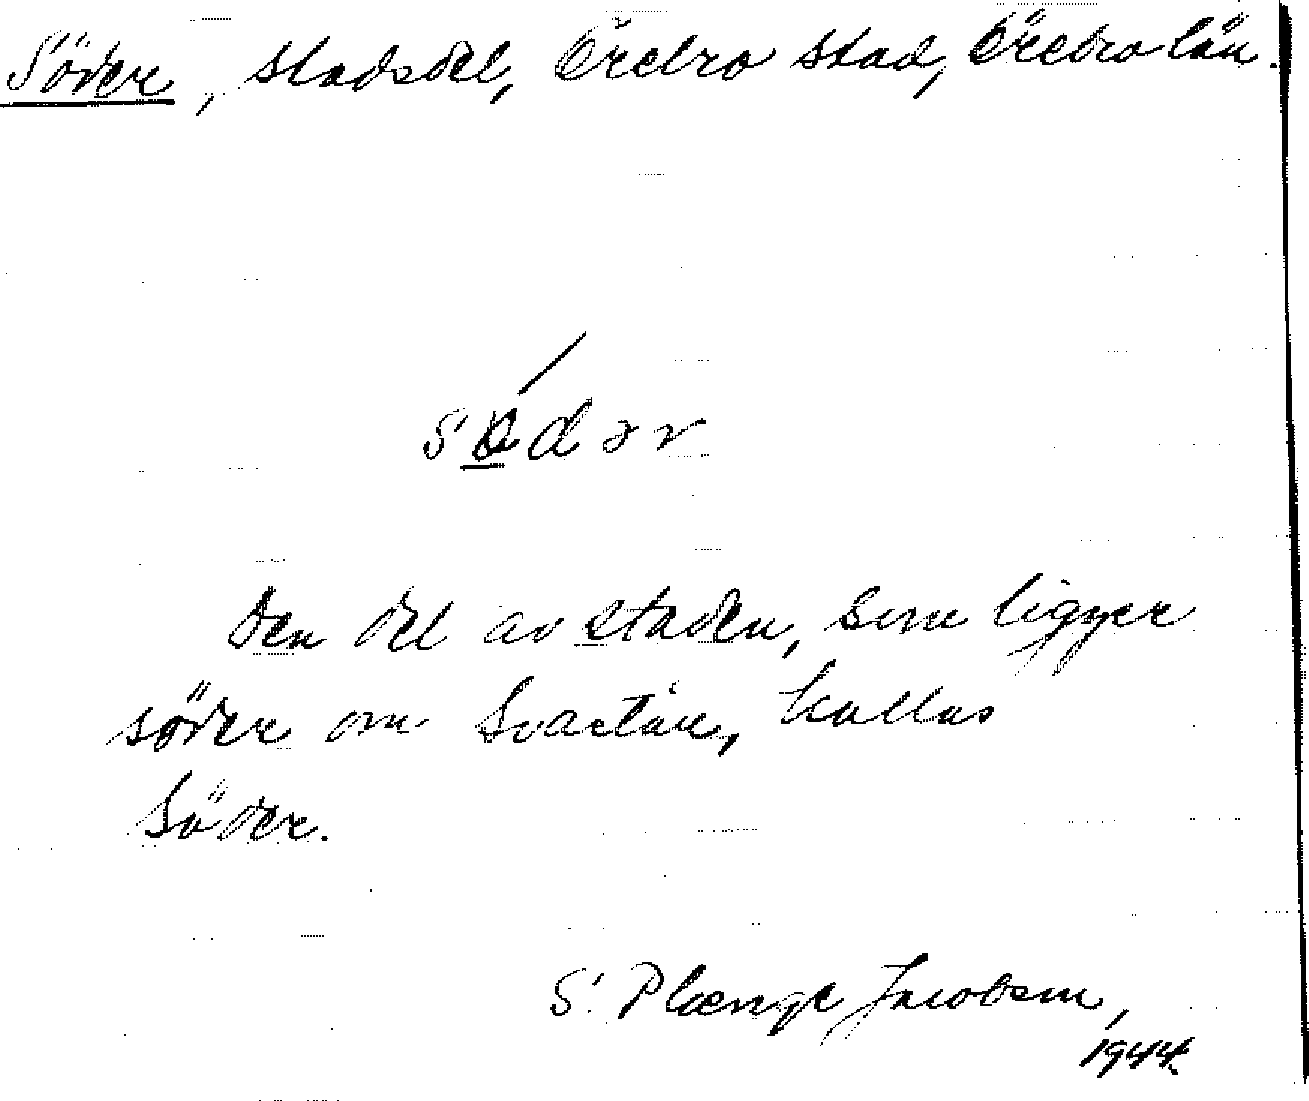 Söder, stadsdel, Örebro stad, Örebro län.
Den del av staden, som ligger
söder om Svartån, kallas
Söder.
S. Plænge Jacobson,
1944.